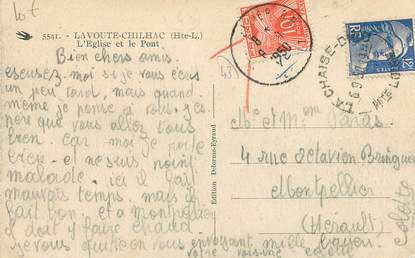 lot
5541. - LAVOUTE-CHILHAC (Hte-L.)
L'Eglise et le Pont
Bien chers amis.
escusez moi si je vous écris
un peu tard, mais quand
même je pense à vous. j'es
père que vous allez tous
bien. car moi je porte
bien et ne suis point
malade. ici il fait
mauvais temps mais il
fait bon. et a montpellier
il doit y faire chaud.
je vous quitte en vous envoyant mille baisers
votre voisine colette
Edition Delorme-Eyraud
43
LA CHAISE-D
HTE LOIRE
1950
10F
12F
Mr et Mme
4 rue octavion
Montpellier
(Hérault)
Colette